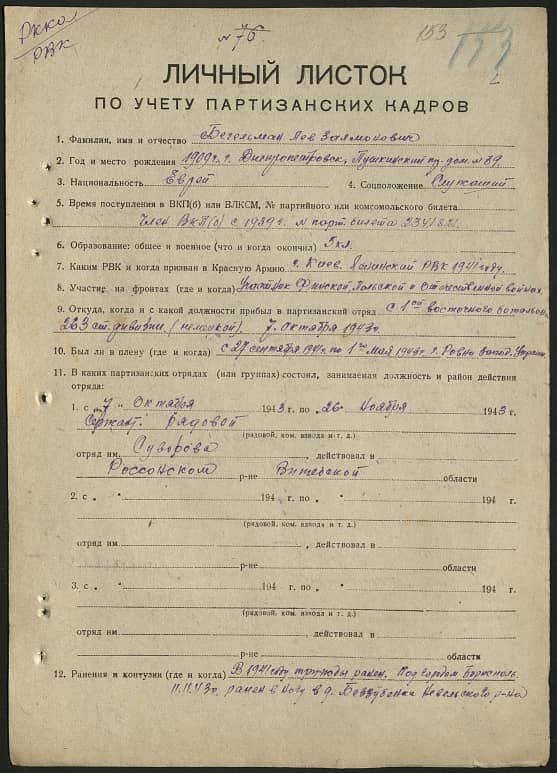 РККА
РВК
№ 76.
153
2
ЛИЧНЫЙ ЛИСТОК
ПО УЧЕТУ ПАРТИЗАНСКИХ КАДРОВ
1. Фамилия, имя и отчество Бегельман Лев Залмонович
2. Год и место рождения 1909 г. г. Днепропетровск, Пушкинский пр. дом. № 39
3. Национальность Еврей 4. Соцположение Служащий
5. Время поступления в ВКП(б) или ВЛКСМ, № партийного или комсомольского билета
Член ВКП(б) с 1939 г. № парт. билета
6. Образование: общее и военное (что и когда окончил) 5 кл.
7. Каким РВК и когда призван в Красную Армию г. Киев. Ленинский РВК 1941 году.
8. Участие на фронтах (где и когда) Участник Финской, Польской и Отечественной войнах
9. Откуда, когда и с какой должности прибыл в партизанский отряд с 1ого восточного батальона
263 ст. дивизии (немецкой). 7. Октября 1943 г.
10. Был ли в плену (где и когда) с 27 сентября 1941 по 1ое мая 1943 г. г. Ровно Запад. Украины
11. В каких партизанских отрядах (или группах) состоял, занимаемая должность и район действия
отряда:
1. с „7„ Октября 1943 г. по „26„ Ноября 1943 г.
Сержант: Рядовой
(рядовой, ком. взвода и т. д.)
отряд им. Суворова, действовал в
Россонском р-не Витебской области
2. с „ „ 194 г. по „ „ 194 г.
(рядовой, ком. взвода и т. д.)
отряд им. , действовал в
р-не области
3. с „ „ 194 г. по „ „ 194 г.
(рядовой, ком. взвода и т. д.)
отряд им. , действовал в
р-не области
12. Ранения и контузии (где и когда) В 1941 году трижды ранен. Под городом Борисполь.
11.11.43 г. ранен в ногу в д. Невельского р-на